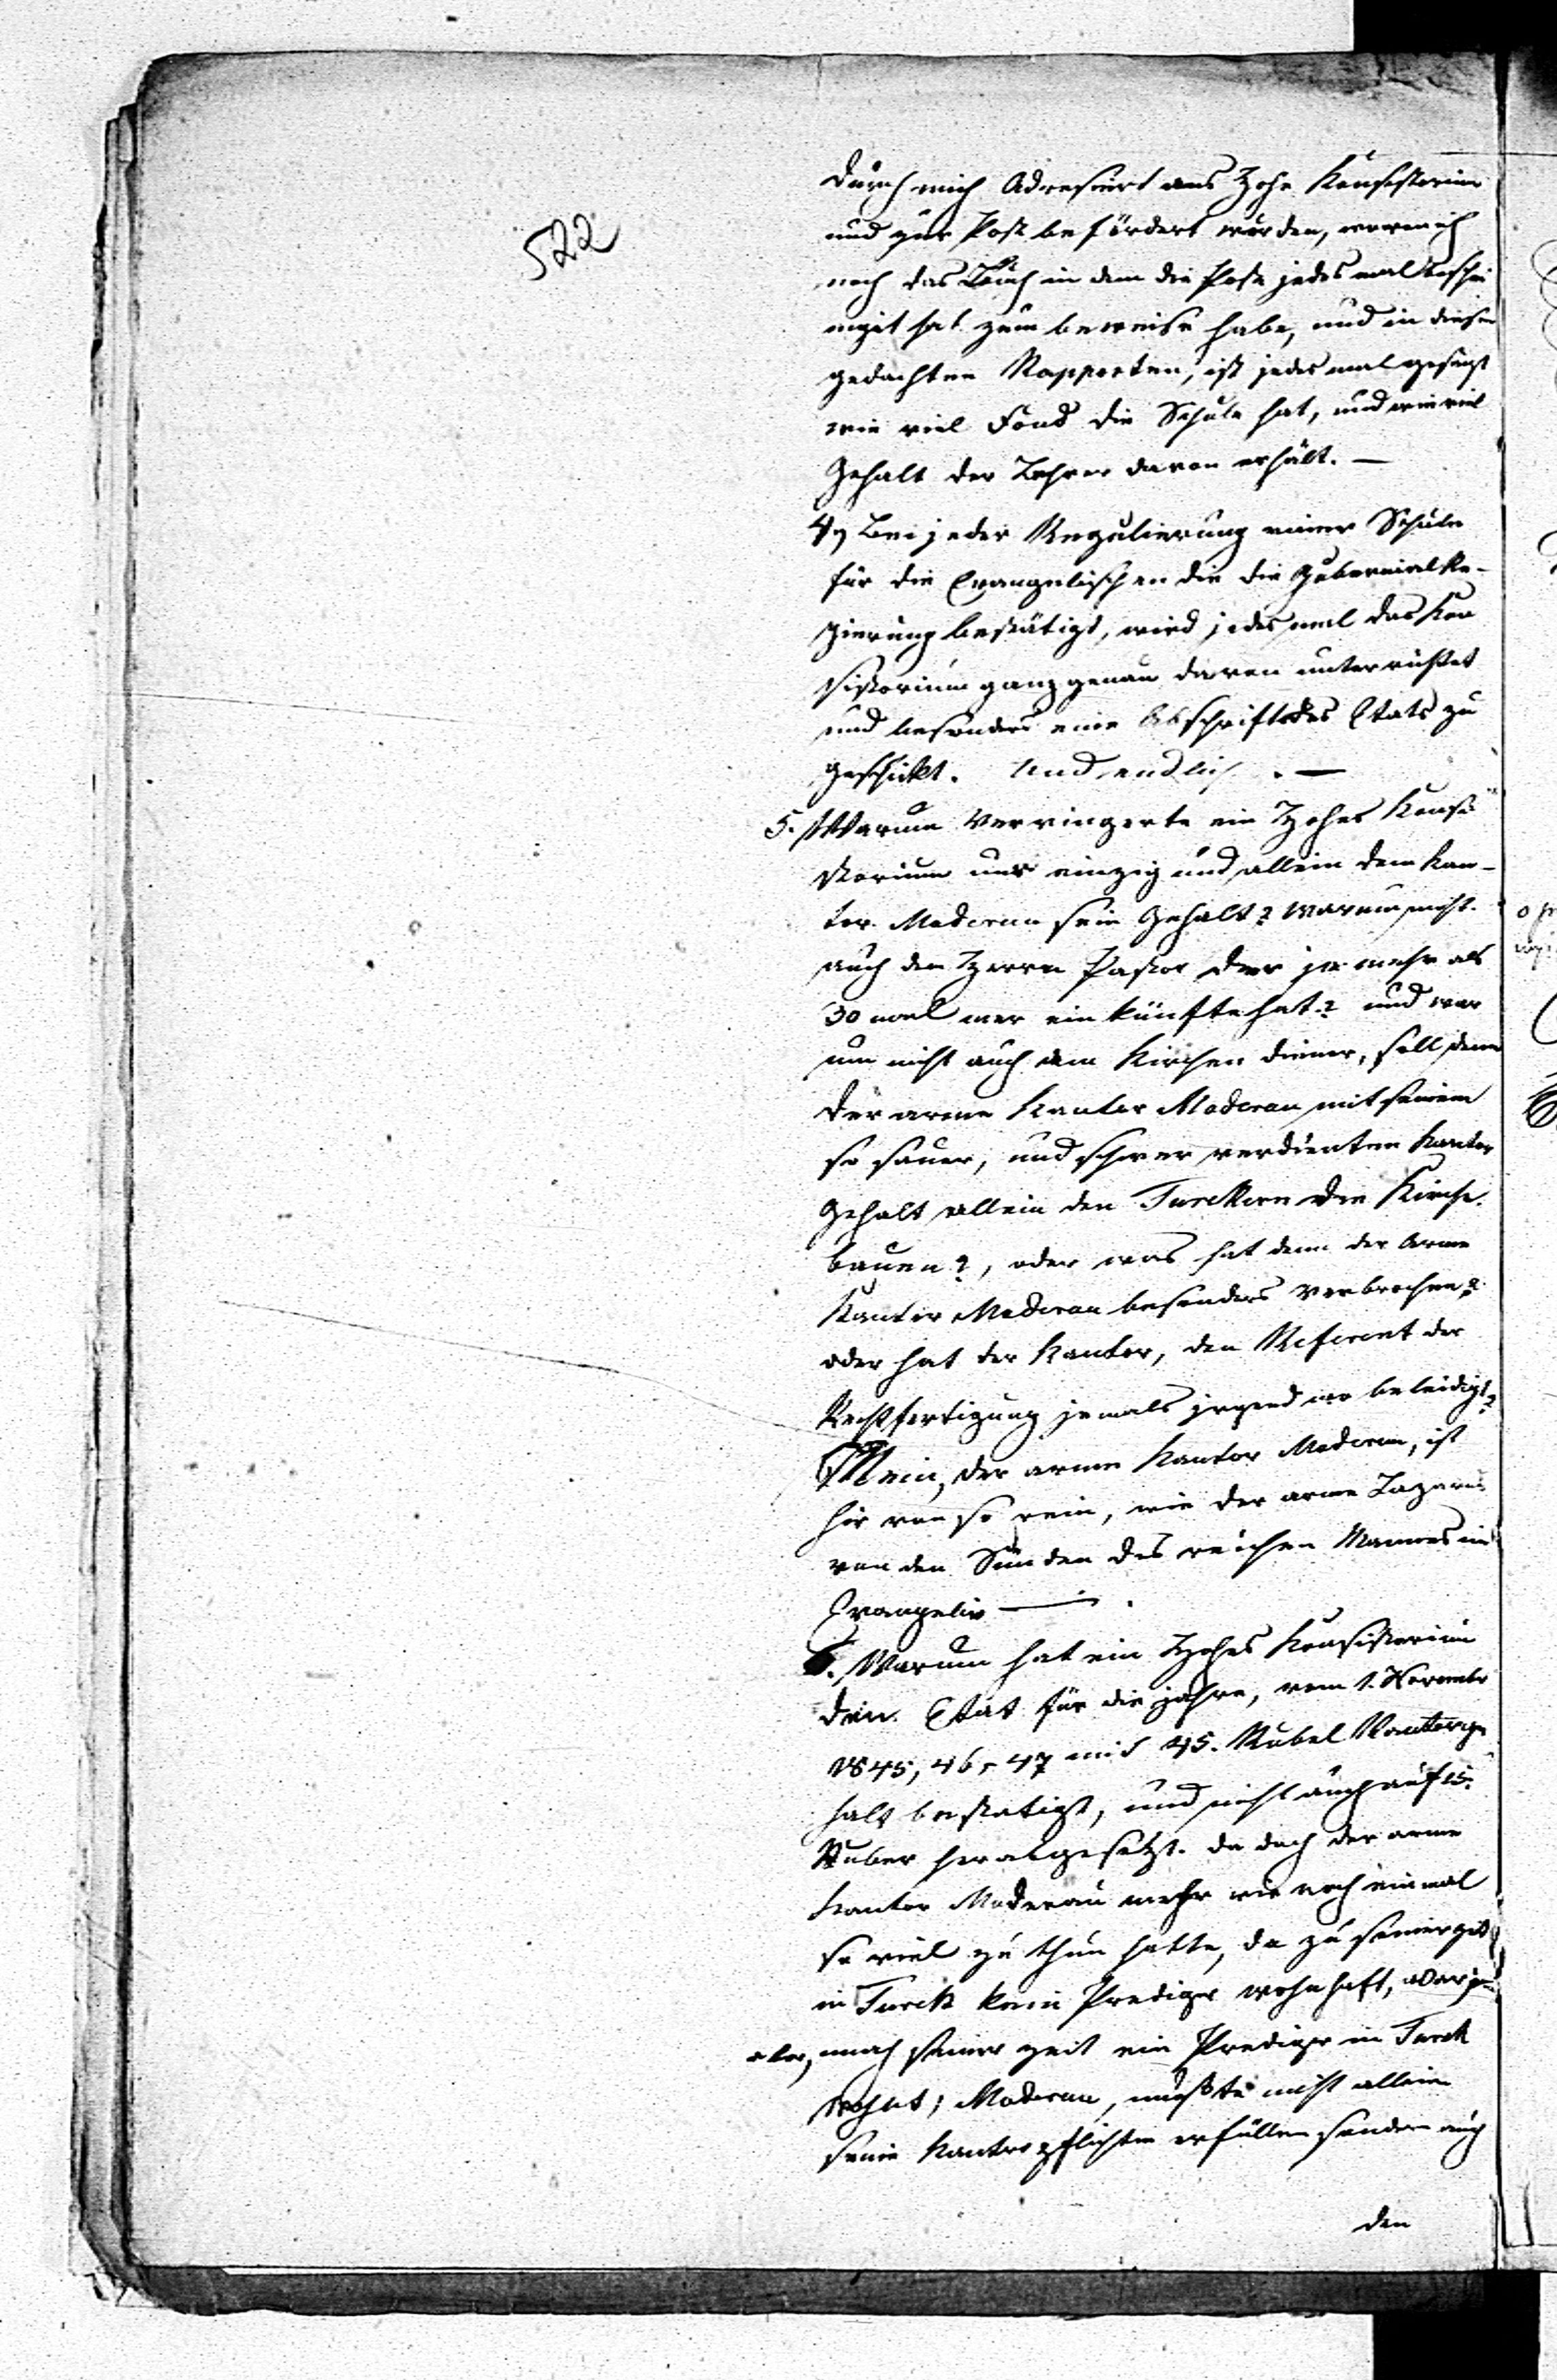 522
durch mich Adressirt ans Hohe Konsistorium
und zur Post befördert wurden, wovon ich
noch das Buch in dem die Post jedes mal beschei
nigt hat zum beweise habe, und in diesen
gedachten Rapporten, ist jedes mal gesagt
wie viel Fond die Schule hat, und wie viel
Gehalt der Lehrer davon erhält. —
4, Bei jeder Regulierung einer Schule
für die Evangelischen die die Gubernial Re-
gierung bestätigt, wird jedes mal das Kon
sistorium ganz genau davon unterrichtet
und besonders eine Abschrift des Etats zu
geschickt. Und endlich. —
5. Warum verringerte ein Hohes Konsi
storium nur einzig und allein dem Kan-
tor Maderau sein Gehalt? Warum nicht
auch den Herrn Pastor der ja mehr als
30 mal mer einkünfte hat? und war
um nicht auch dem Kirchen diener, soll denn
der arme Kantor Maderau mit seinem
so sauer, und schwer verdienten Kantor
Gehalt allein den Turekern die Kirche
bauen?, oder was hat denn der Arme
Kantor Maderau besonders verbrochen?
oder hat der Kantor, den Referent der
Rechtfertigung jemals irgend wo beleidigt?
Nein, der arme Kantor Maderau, ist
hir von so rein, wie der arme Lazarus
von den Sünden des reichen Mannes im
Evangelio —.
6. Warum hat ein Hohes Konsistorium
den Etat für die jahre, vom 1. November
1845, 46, 47 mit 45. Rubel Kantorge
halt bestätigt, und nicht auch auf 15.
Ruber herabgesetzt. da doch der arme
Kantor Maderau mehr wie noch einmal
so viel zu thun hatte, da zu seiner zeit
in Turek kein Prediger wohnhaft, war
aber, nach seiner zeit ein Prediger in Turek
wohnt; Maderau, mußte nicht allein
seine Kantorpflichten erfüllen sondern auch
den